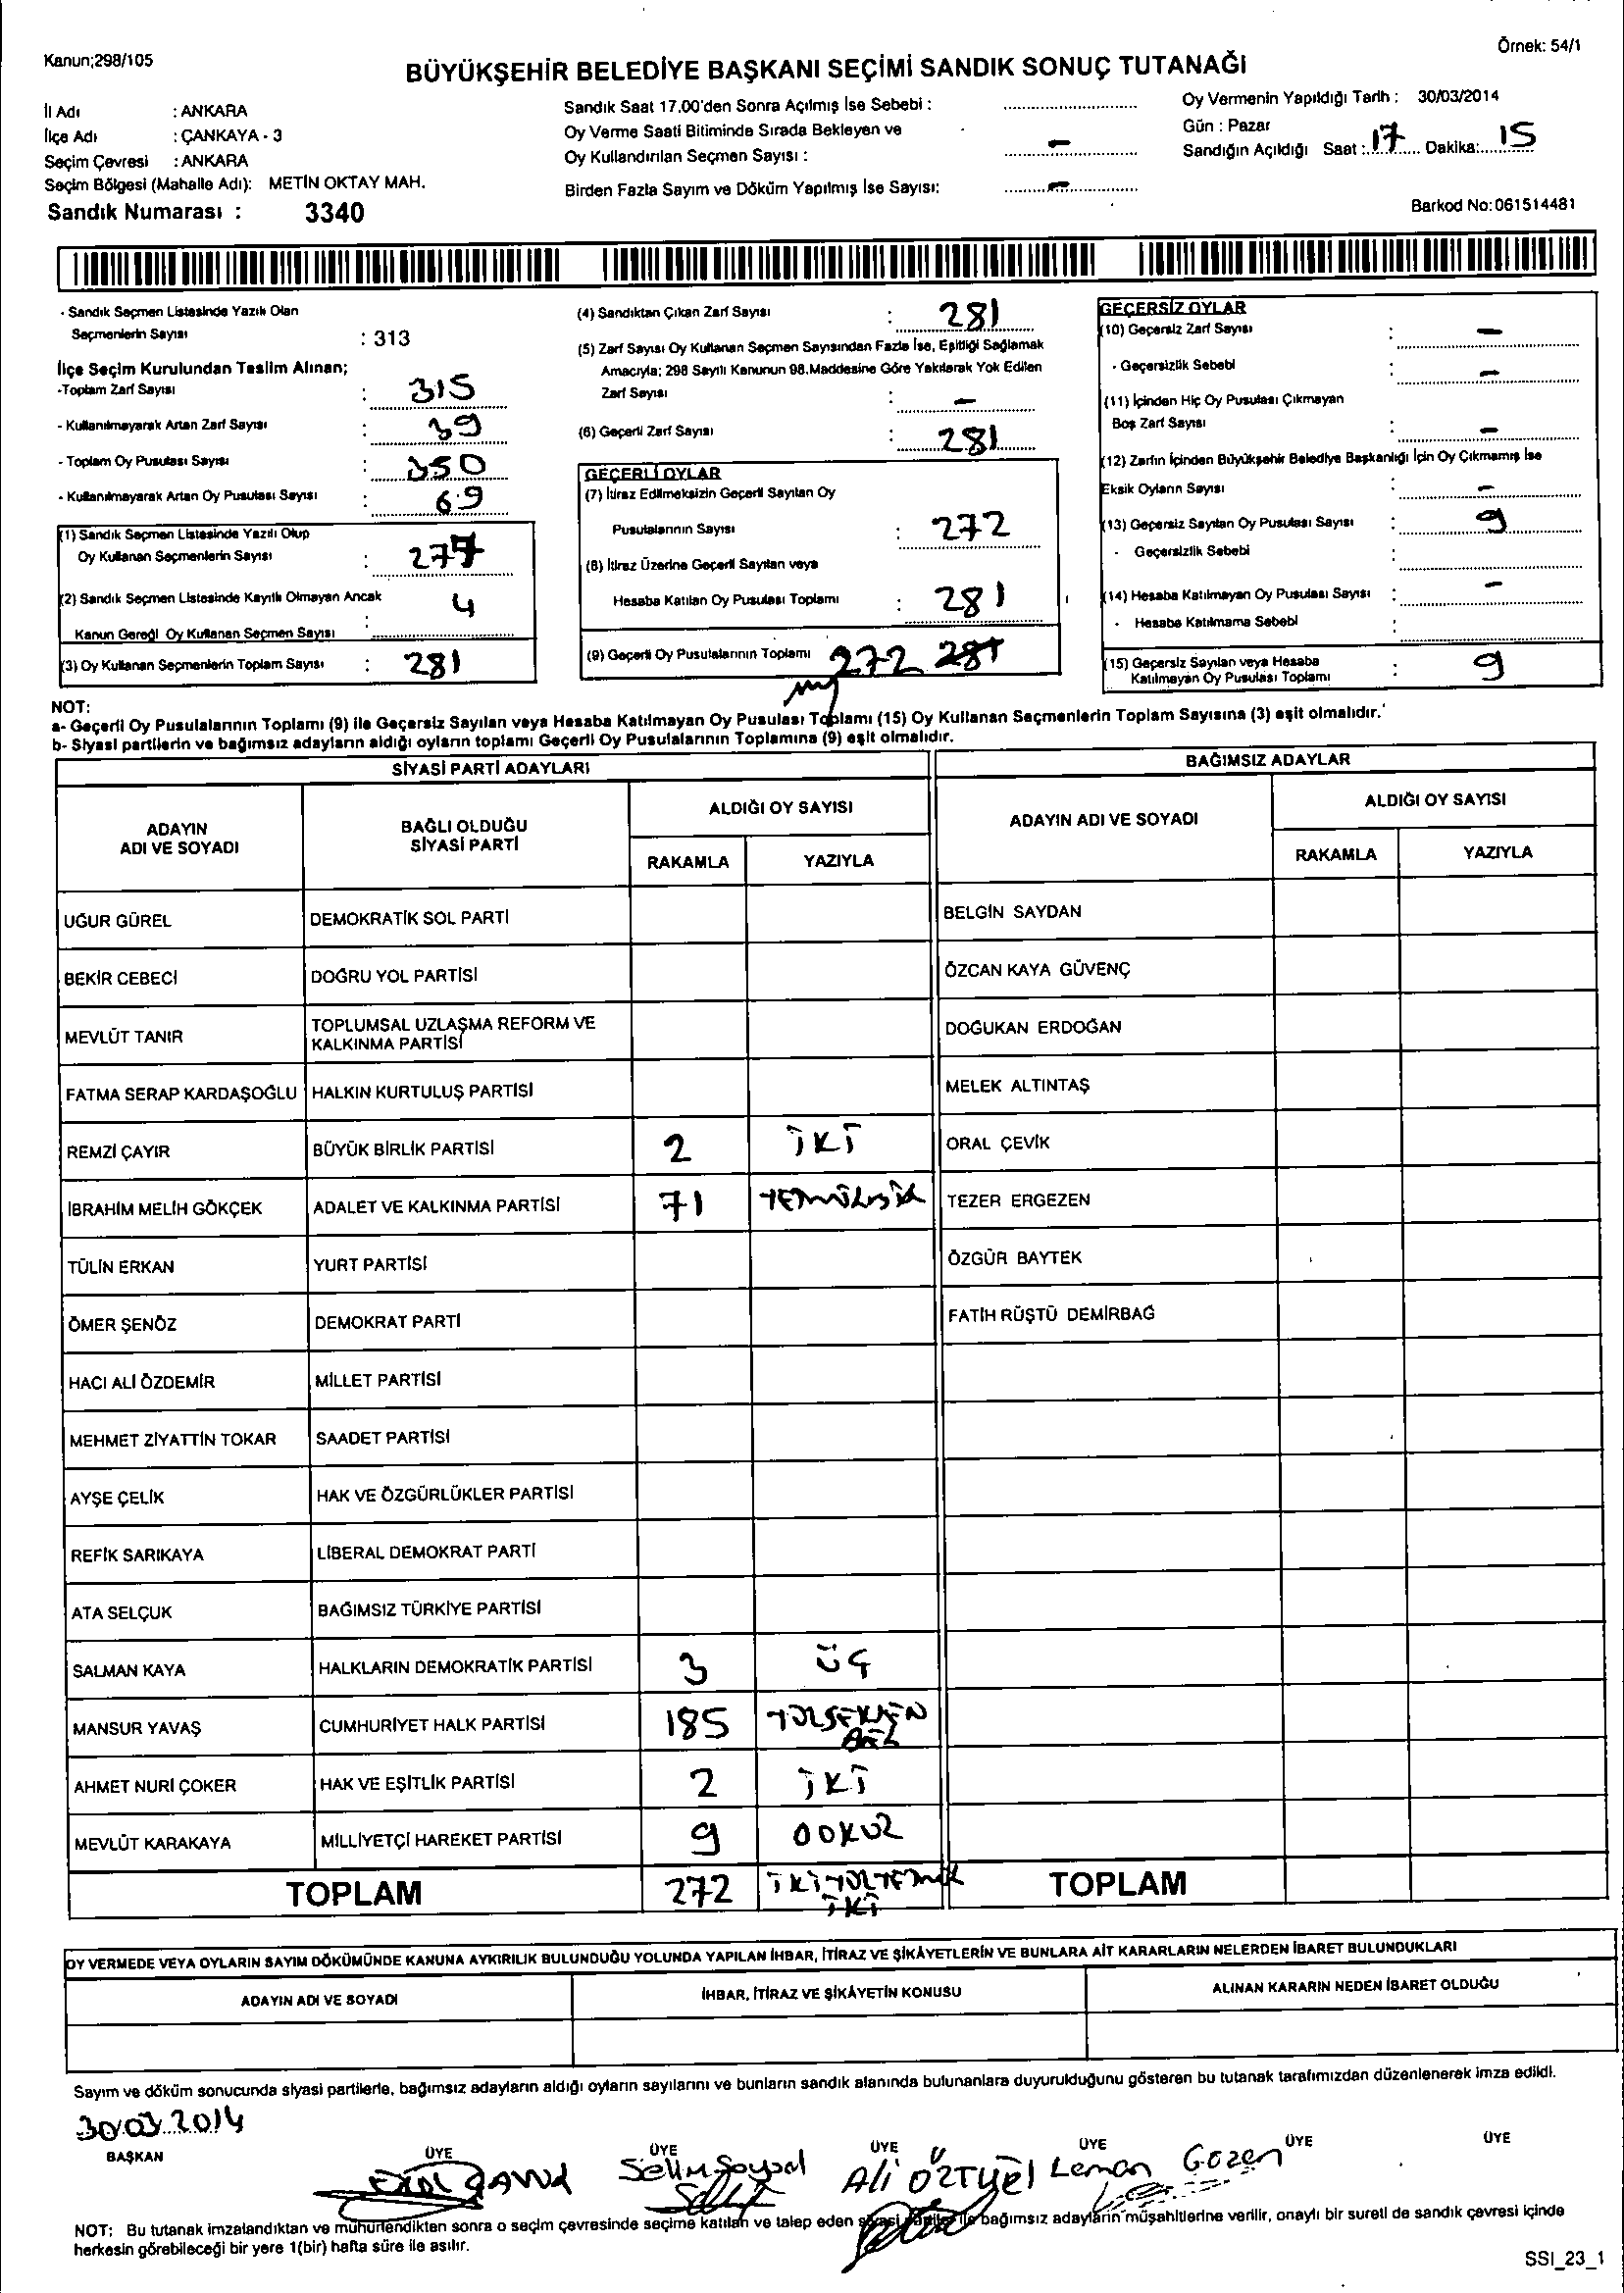 Kanun;298/105
Örnek: 54/1
BÜYÜKŞEHİR BELEDİYE BAŞKANI SEÇİMİ SANDIK SONUÇ TUTANAĞI
İl Adı : ANKARA
İlçe Adı : ÇANKAYA - 3
Seçim Çevresi : ANKARA
Seçim Bölgesi (Mahalle Adı): METİN OKTAY MAH.
Sandık Numarası : 3340
Sandık Saat 17.00'den Sonra Açılmış İse Sebebi :
Oy Verme Saati Bitiminde Sırada Bekleyen ve
Oy Kullandırılan Seçmen Sayısı : -
Birden Fazla Sayım ve Döküm Yapılmış İse Sayısı: -
Oy Vermenin Yapıldığı Tarih : 30/03/2014
Gün : Pazar
Sandığın Açıldığı Saat : 17 Dakika: 15
Barkod No:061514481
- Sandık Seçmen Listesinde Yazılı Olan
Seçmenlerin Sayısı : 313
İlçe Seçim Kurulundan Teslim Alınan;
-Toplam Zarf Sayısı : 315
- Kullanılmayarak Artan Zarf Sayısı : 39
- Toplam Oy Pusulası Sayısı : 350
- Kullanılmayarak Artan Oy Pusulası Sayısı : 69
(1) Sandık Seçmen Listesinde Yazılı Olup
Oy Kullanan Seçmenlerin Sayısı : 277
(2) Sandık Seçmen Listesinde Kayıtlı Olmayan Ancak
Kanun Gereği Oy Kullanan Seçmen Sayısı : 4
(3) Oy Kullanan Seçmenlerin Toplam Sayısı : 281
(4) Sandıktan Çıkan Zarf Sayısı : 281
(5) Zarf Sayısı Oy Kullanan Seçmen Sayısından Fazla İse, Eşitliği Sağlamak
Amacıyla; 298 Sayılı Kanunun 98.Maddesine Göre Yakılarak Yok Edilen
Zarf Sayısı : -
(6) Geçerli Zarf Sayısı : 281
GEÇERLİ OYLAR
(7) İtiraz Edilmeksizin Geçerli Sayılan Oy
Pusulalarının Sayısı : 272
(8) İtiraz Üzerine Geçerli Sayılan veya
Hesaba Katılan Oy Pusulası Toplamı : 281
(9) Geçerli Oy Pusulalarının Toplamı 272 281
GEÇERSİZ OYLAR
(10) Geçersiz Zarf Sayısı : -
- Geçersizlik Sebebi : -
(11) İçinden Hiç Oy Pusulası Çıkmayan
Boş Zarf Sayısı : -
(12) Zarfın İçinden Büyükşehir Belediye Başkanlığı İçin Oy Çıkmamış İse
Eksik Oyların Sayısı : -
(13) Geçersiz Sayılan Oy Pusulası Sayısı : 9
- Geçersizlik Sebebi :
(14) Hesaba Katılmayan Oy Pusulası Sayısı : -
- Hesaba Katılmama Sebebi :
(15) Geçersiz Sayılan veya Hesaba
Katılmayan Oy Pusulası Toplamı : 9
NOT:
a- Geçerli Oy Pusulalarının Toplamı (9) ile Geçersiz Sayılan veya Hesaba Katılmayan Oy Pusulası Toplamı (15) Oy Kullanan Seçmenlerin Toplam Sayısına (3) eşit olmalıdır.
b- Siyasi partilerin ve bağımsız adayların aldığı oyların toplamı Geçerli Oy Pusulalarının Toplamına (9) eşit olmalıdır.
SİYASİ PARTİ ADAYLARI
BAĞIMSIZ ADAYLAR
ADAYIN
ADI VE SOYADI
BAĞLI OLDUĞU
SİYASİ PARTİ
ALDIĞI OY SAYISI
RAKAMLA YAZIYLA
ADAYIN ADI VE SOYADI
ALDIĞI OY SAYISI
RAKAMLA YAZIYLA
UĞUR GÜREL DEMOKRATİK SOL PARTİ BELGİN SAYDAN
BEKİR CEBECİ DOĞRU YOL PARTİSİ ÖZCAN KAYA GÜVENÇ
MEVLÜT TANIR TOPLUMSAL UZLAŞMA REFORM VE
KALKINMA PARTİSİ DOĞUKAN ERDOĞAN
FATMA SERAP KARDAŞOĞLU HALKIN KURTULUŞ PARTİSİ MELEK ALTINTAŞ
REMZİ ÇAYIR BÜYÜK BİRLİK PARTİSİ 2 İKİ ORAL ÇEVİK
İBRAHİM MELİH GÖKÇEK ADALET VE KALKINMA PARTİSİ 71 TEZER ERGEZEN
TÜLİN ERKAN YURT PARTİSİ ÖZGÜR BAYTEK
ÖMER ŞENÖZ DEMOKRAT PARTİ FATİH RÜŞTÜ DEMİRBAĞ
HACI ALİ ÖZDEMİR MİLLET PARTİSİ
MEHMET ZİYATTİN TOKAR SAADET PARTİSİ
AYŞE ÇELİK HAK VE ÖZGÜRLÜKLER PARTİSİ
REFİK SARIKAYA LİBERAL DEMOKRAT PARTİ
ATA SELÇUK BAĞIMSIZ TÜRKİYE PARTİSİ
SALMAN KAYA HALKLARIN DEMOKRATİK PARTİSİ 3 ÜÇ
MANSUR YAVAŞ CUMHURİYET HALK PARTİSİ 185 YÜZSEKSEN
BEŞ
AHMET NURİ ÇOKER HAK VE EŞİTLİK PARTİSİ 2 İKİ
MEVLÜT KARAKAYA MİLLİYETÇİ HAREKET PARTİSİ 9 DOKUZ
TOPLAM 272 İKİYÜZYETMİŞ
İKİ
TOPLAM
OY VERMEDE VEYA OYLARIN SAYIM DÖKÜMÜNDE KANUNA AYKIRILIK BULUNDUĞU YOLUNDA YAPILAN İHBAR, İTİRAZ VE ŞİKÂYETLERİN VE BUNLARA AİT KARARLARIN NELERDEN İBARET BULUNDUKLARI
ADAYIN ADI VE SOYADI
İHBAR, İTİRAZ VE ŞİKÂYETİN KONUSU
ALINAN KARARIN NEDEN İBARET OLDUĞU
Sayım ve döküm sonucunda siyasi partilerle, bağımsız adayların aldığı oyların sayılarını ve bunların sandık alanında bulunanlara duyurulduğunu gösteren bu tutanak tarafımızdan düzenlenerek imza edildi.
30.03.2014
BAŞKAN ÜYE ÜYE ÜYE ÜYE ÜYE ÜYE
Selim Soysal Ali ÖZTÜRK Leman Gözen
NOT: Bu tutanak imzalandıktan ve mühürlendikten sonra o seçim çevresinde seçime katılan ve talep eden siyasi partiler ile bağımsız adayların müşahitlerine verilir, onaylı bir sureti de sandık çevresi içinde
herkesin görebileceği bir yere 1(bir) hafta süre ile asılır.
SSI_23_1